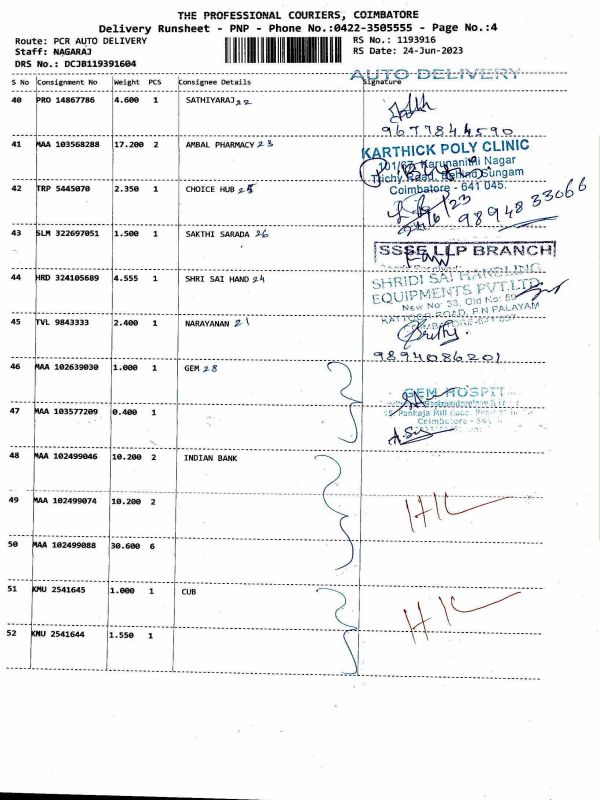 THE PROFESSIONAL COURIERS, COIMBATORE
Delivery Runsheet - PNP - Phone No.:0422-3505555 - Page No.:4
Route: PCR AUTO DELIVERY RS No.: 1193916
Staff: NAGARAJ RS Date: 24-Jun-2023
DRS No.: DCJB119391604
AUTO DELIVERY
S No Consignment No Weight PCS Consignee Details Signature
40 PRO 14867786 4.600 1 SATHIYARAJ 22
9677844590
41 MAA 103568288 17.200 2 AMBAL PHARMACY 23
KARTHICK POLY CLINIC
101/67, Karunanithi Nagar
Trichy Road, Behind Sungam
Coimbatore - 641 045.
42 TRP 5445070 2.350 1 CHOICE HUB 25
24/6/23 9894833066
43 SLM 322697051 1.500 1 SAKTHI SARADA 26
SSSE LLP BRANCH
44 HRD 324105689 4.555 1 SHRI SAI HAND 24
SHRIDI SAI HANDLING
EQUIPMENTS PVT.LTD
New No: 33, Old No: 59
KATTOOR ROAD, P.N PALAYAM
COIMBATORE-641 037
45 TVL 9843333 2.400 1 NARAYANAN 21
9894086201
46 MAA 102639030 1.000 1 GEM 28
GEM HOSPIT
Pankaja Mill Road
Coimbatore - 641
47 MAA 103577209 0.400 1
48 MAA 102499046 10.200 2 INDIAN BANK
49 MAA 102499074 10.200 2
50 MAA 102499088 30.600 6
51 KMU 2541645 1.000 1 CUB
52 KMU 2541644 1.550 1